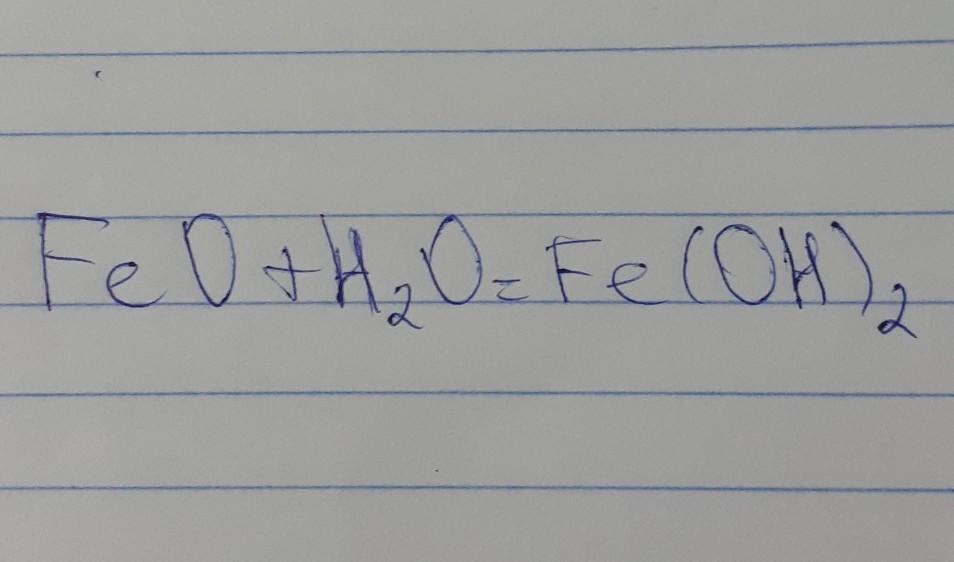 FeO+H₂O=Fe(OH)₂